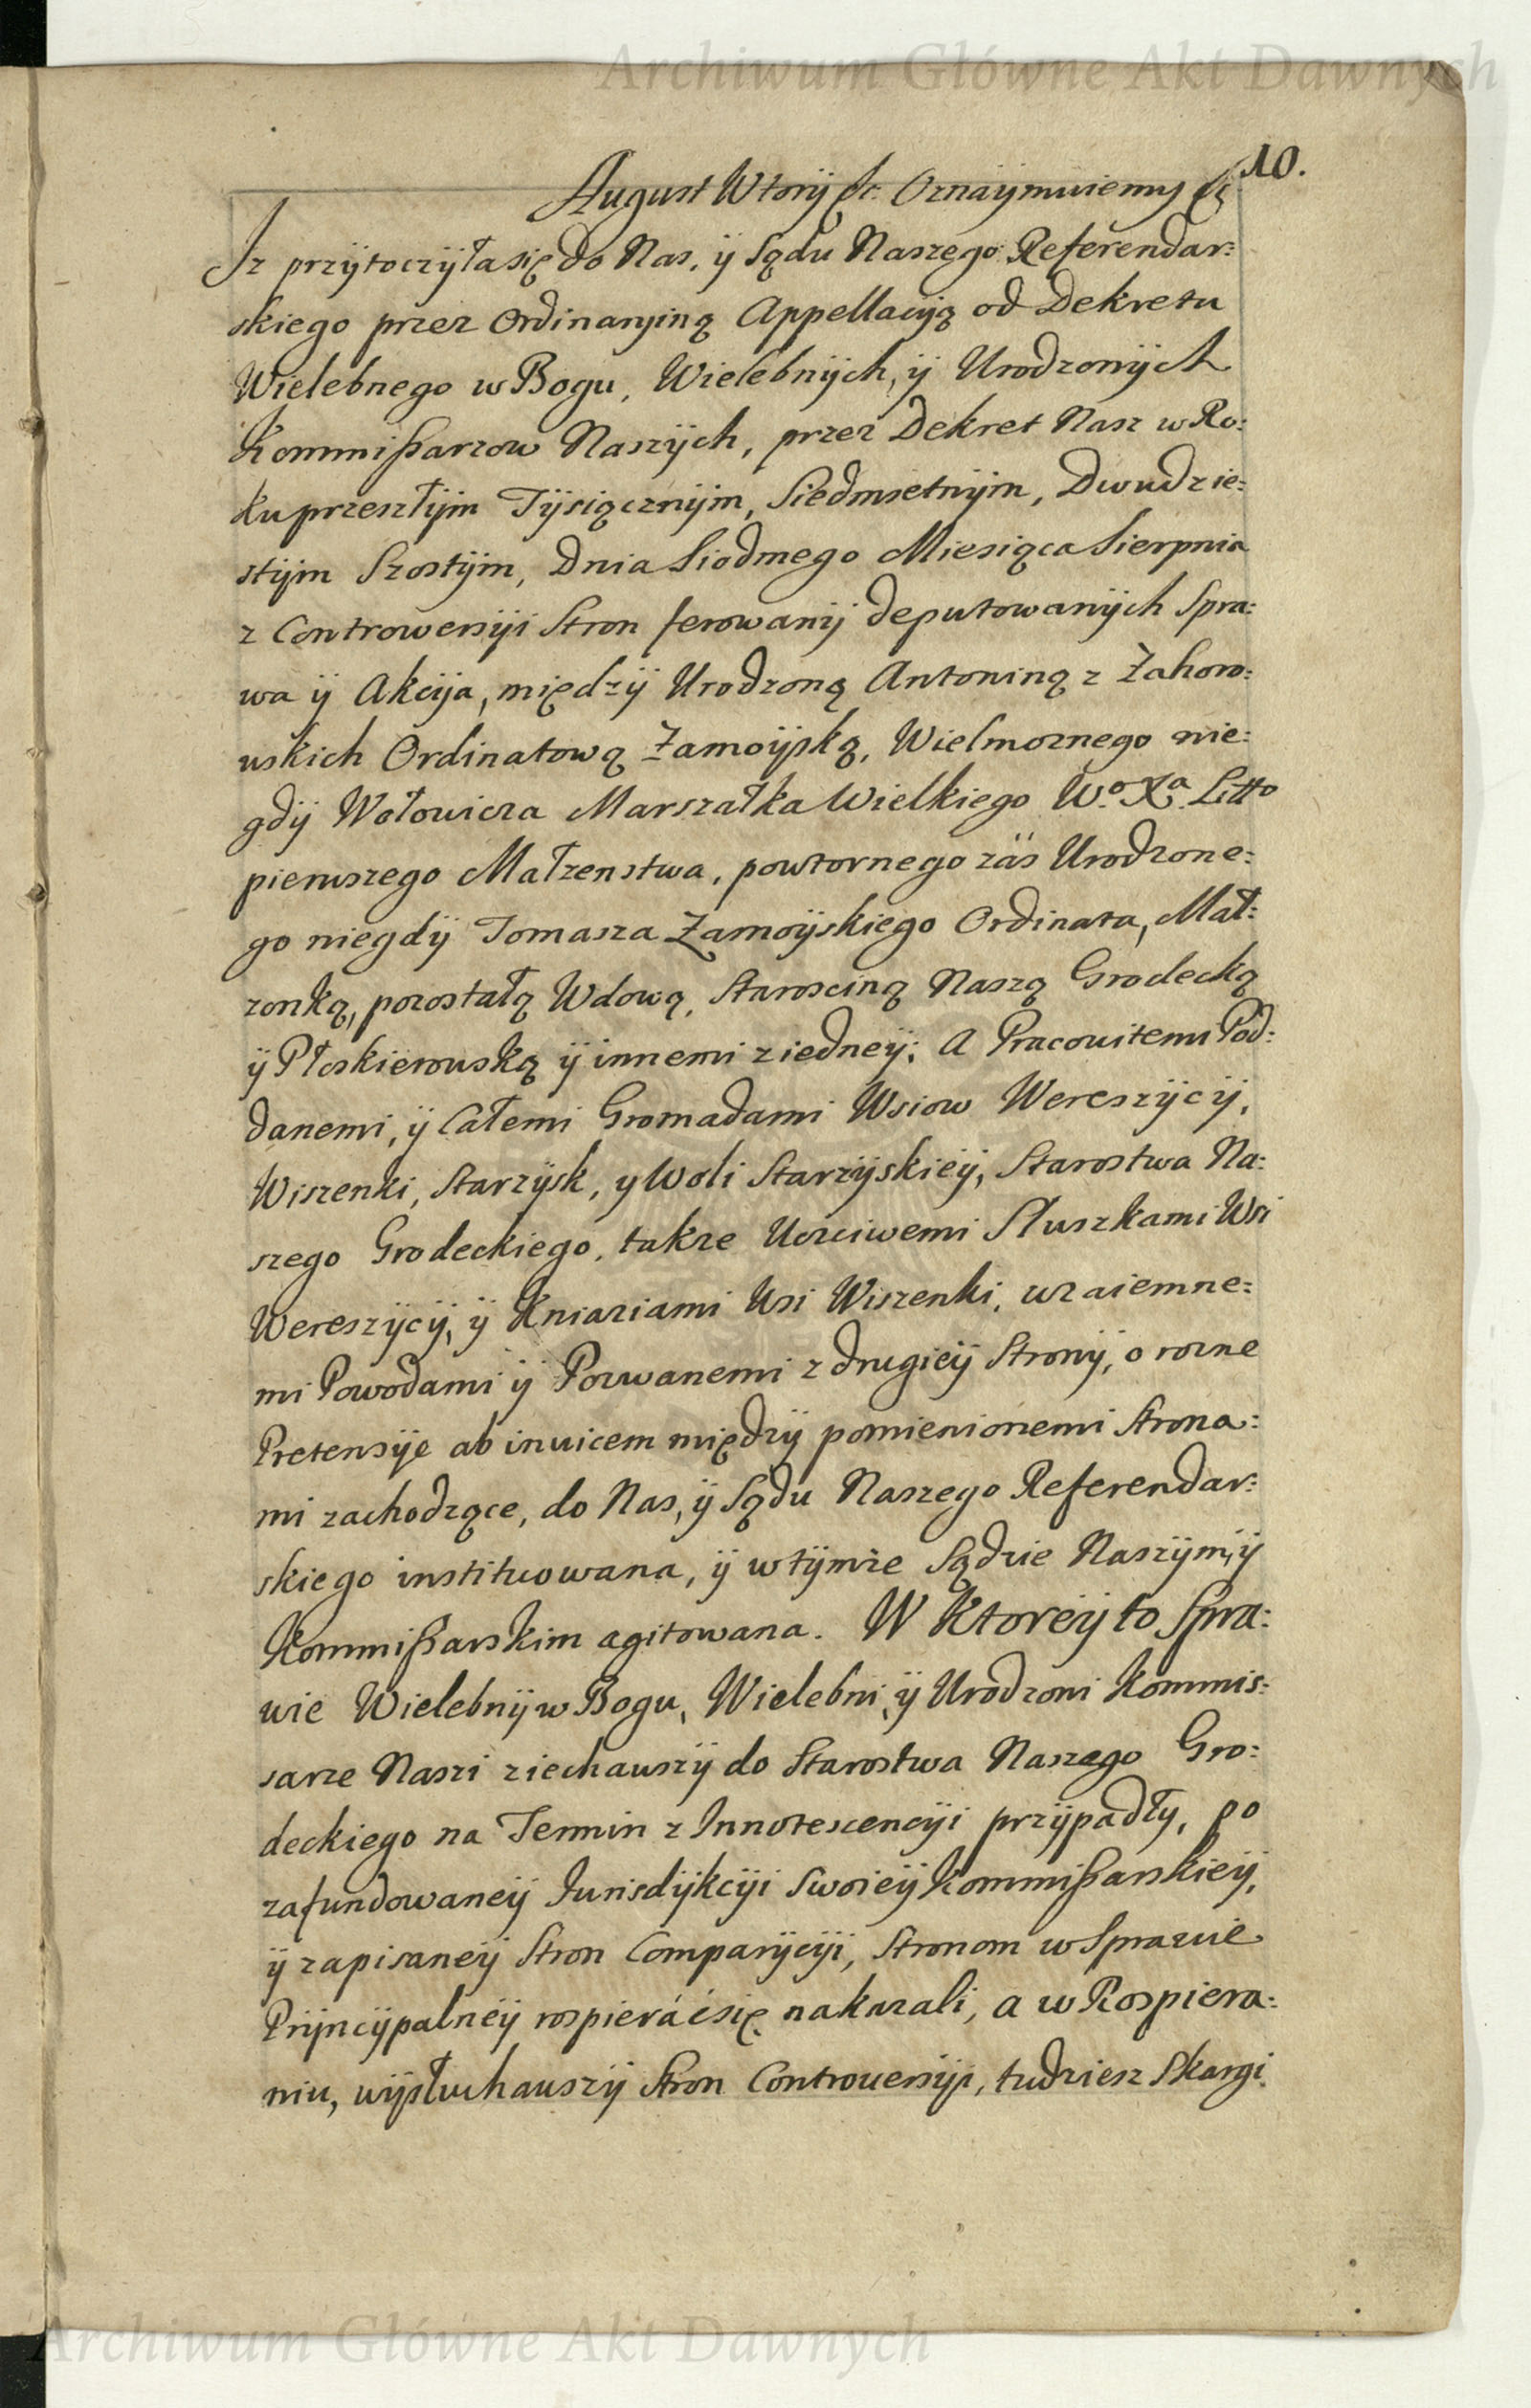 Archiwum Główne Akt Dawnych
10.
August Wtorÿ &c. Oznaÿmuiemy &c
Iz przÿtoczÿła się do Nas, ÿ Sądu Naszego Referendar:
skiego przez Ordinarÿiną Appellacÿą od Dekretu
Wielebnego w Bogu, Wielebnÿch, ÿ Urodzonÿch
Kommißarzow Naszÿch, przez Dekret Nasz w Ro:
ku przeszłÿm Tÿsiącznÿm, Siedmsetnÿm, Dwudzie:
stÿm Szostÿm, Dnia Siodmego Miesiąca Sierpnia
z Controwersÿi Stron ferowanÿ deputowanÿch Spra:
wa ÿ Akcÿa, międzÿ Urodzoną Antoniną z Zahoro:
wskich Ordinatową Zamoÿską, Wielmoznego nie:
gdÿ Wołowicza Marszałka Wielkiego Wo. Xa. Litto
pierwszego Małzenstwa, powtornego záś Urodzone:
go niegdÿ Tomasza Zamoÿskiego Ordinata, Mał:
zonką, pozostałą Wdową, Starosciną Naszą Grodecką
ÿ Płoskierowską ÿ innemi z iedneÿ; A Pracowitemi Pod:
danemi, ÿ Całemi Gromadami Wsiow Wereszÿcÿ,
Wiszenki, Starzÿsk, y Woli Starzÿskieÿ, Starostwa Na:
szego Grodeckiego, takze Uczciwemi Słuszkami Wsi
Wereszÿcÿ, ÿ Kniaziami Wsi Wiszenki, wzaiemne:
mi Powodami ÿ Pozwanemi z drugieÿ Stronÿ, o rozne
Pretensÿe ab inuicem międzÿ pomienionemi Strona:
mi zachodzące, do Nas, ÿ Sądu Naszego Referendar:
skiego instituowana, ÿ w tÿmże Sądzie Naszÿm, ÿ
Kommißarskim agitowana. W Ktoreÿ to Spra:
wie Wielebnÿ w Bogu, Wielebni, ÿ Urodzoni Kommis:
sarze Naszi ziechawszÿ do Starostwa Naszego Gro:
deckiego na Termin z Innotescencÿi przÿpadłÿ, po
zafundowaneÿ Jurisdÿkcÿi Swoieÿ Kommißarskieÿ,
ÿ zapisaneÿ Stron Comparÿcÿi, Stronom w Sprawie
Prÿncÿpalneÿ rospieráć się nakazali, a w Rospiera:
niu, wÿsłuchawszÿ Stron Controuersÿi, tudziesz Skargi
Archiwum Główne Akt Dawnych